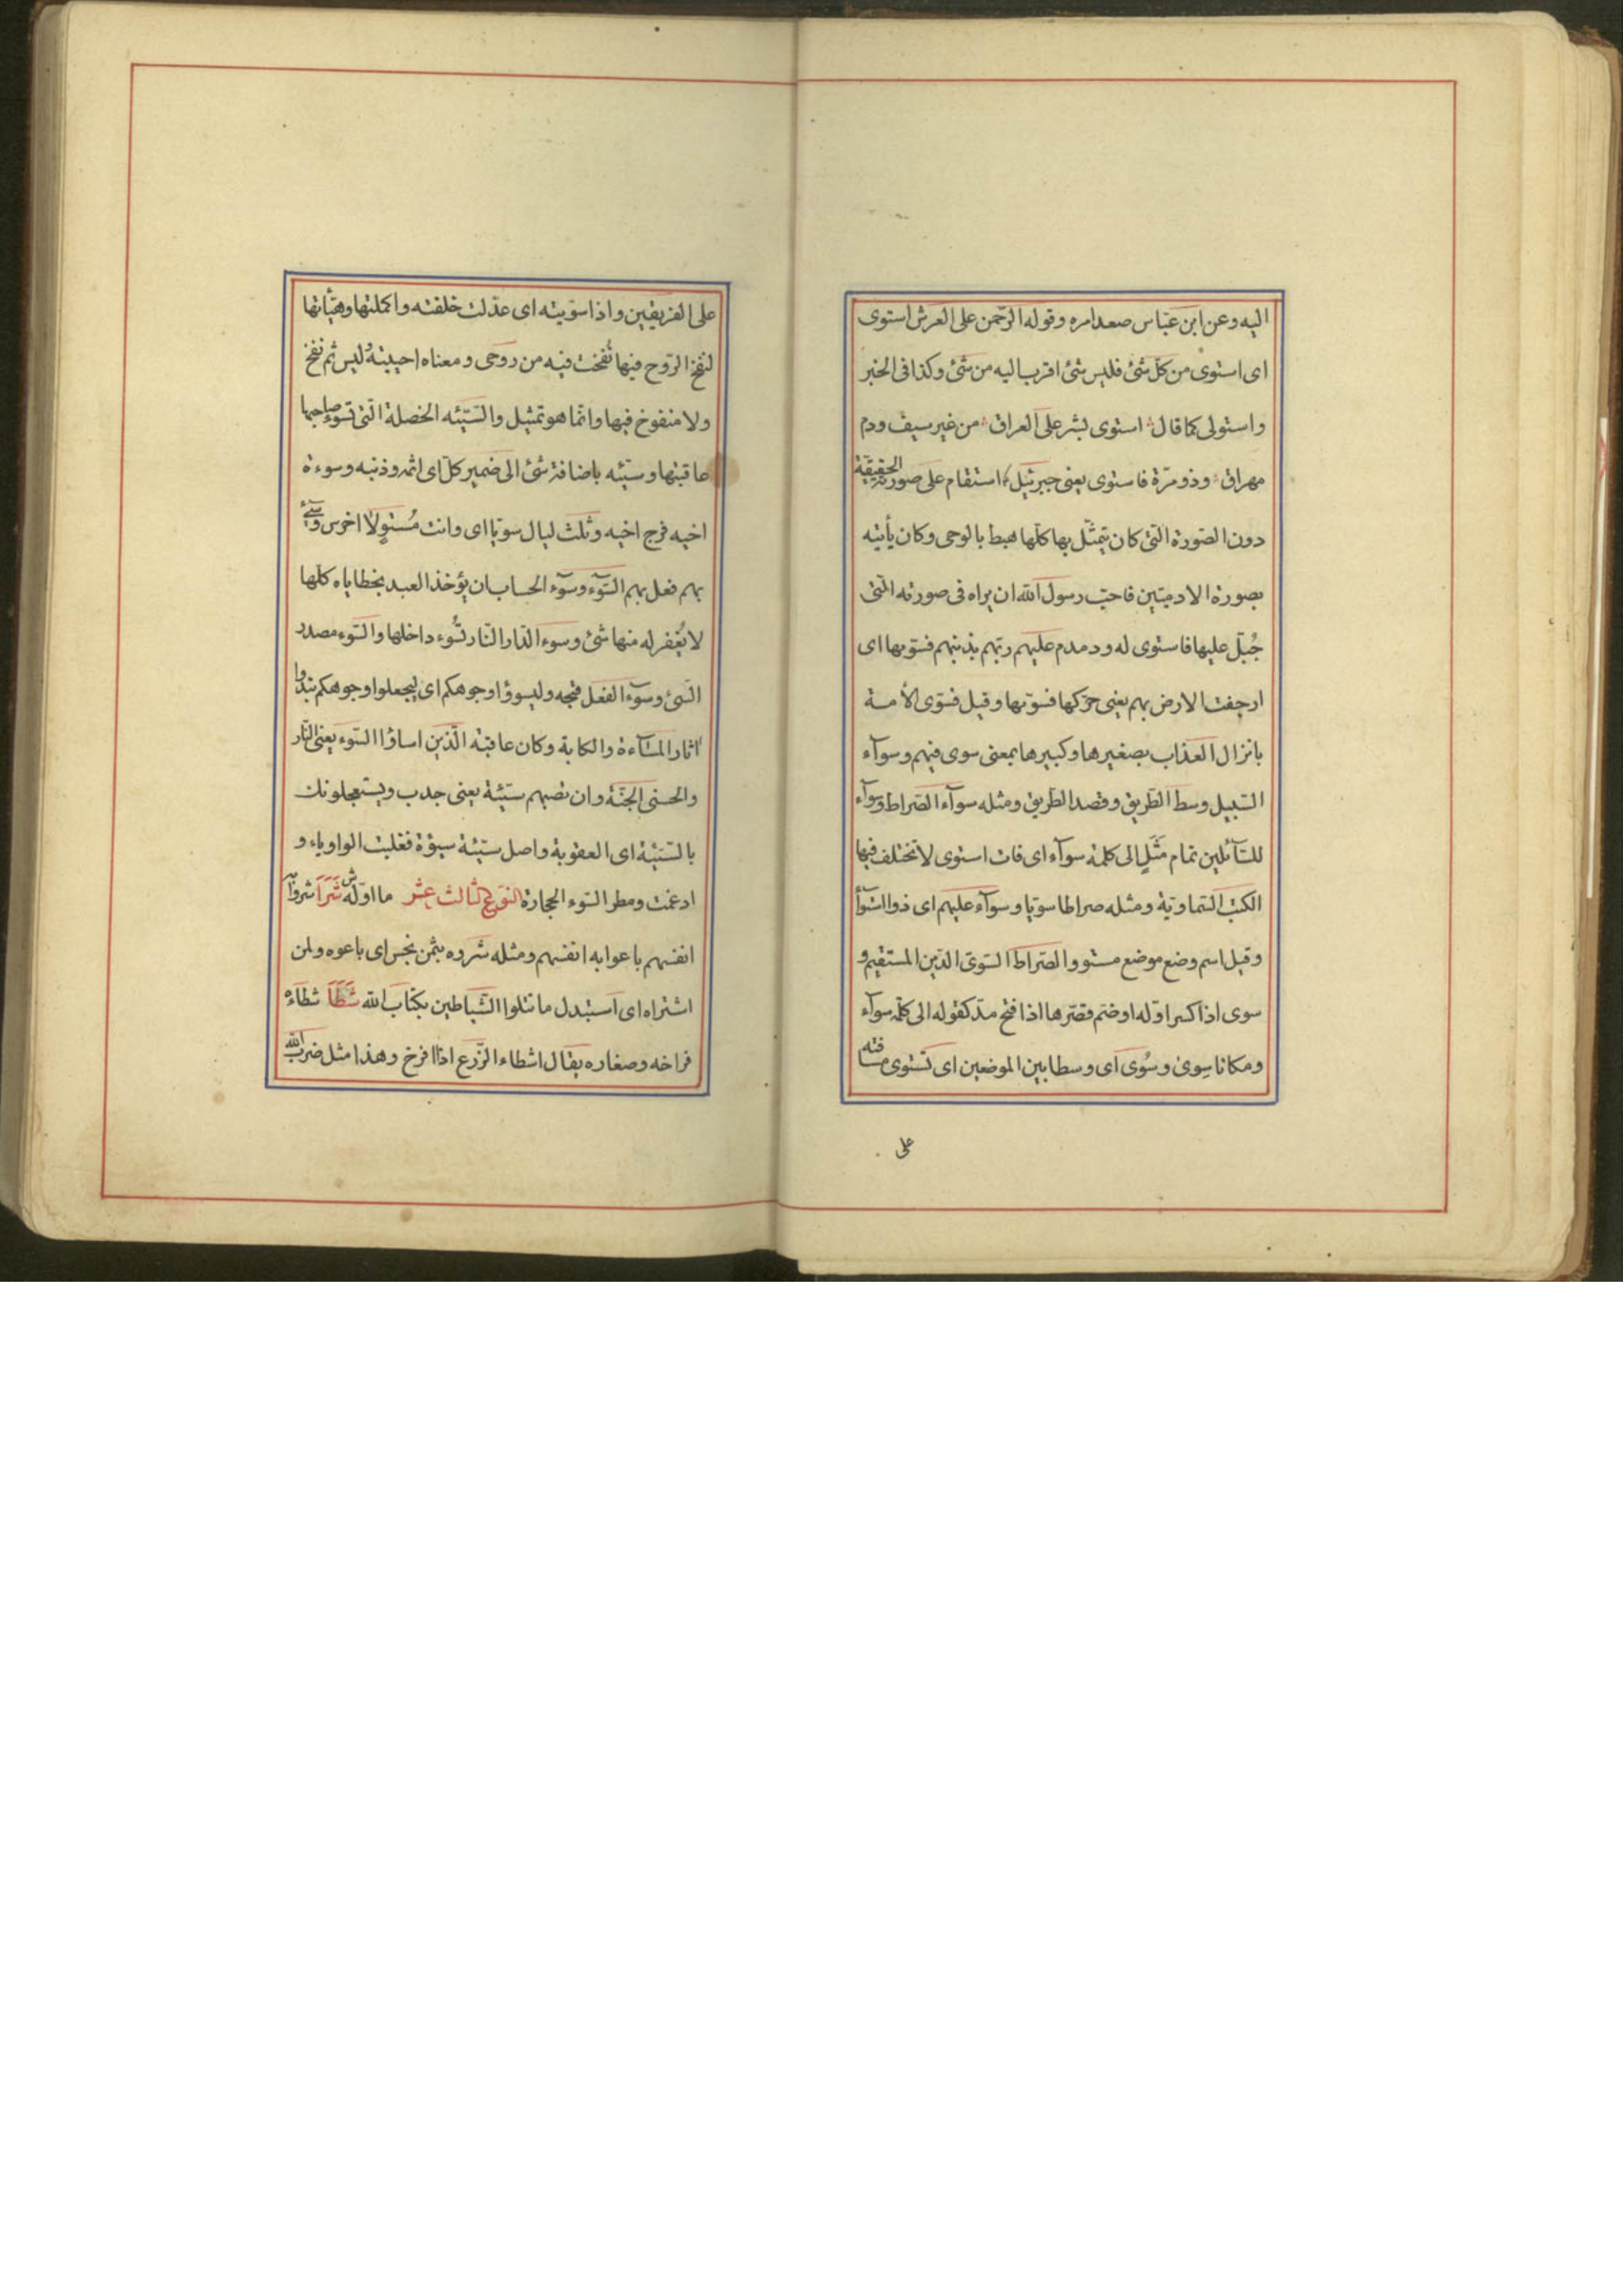 اليه وعن ابن عبّاس صعد امره وقوله الرّحمن على العرش استوى
اى استوى من كلّ شئ فليس شئ اقرب اليه من شئ وكذا فى الخبر
واستولى كما قال استوى بشر على العراق من غير سيف ودم
مهراق وذو مرّة فاستوى يعنى جبرئيل استقام على صورته الحقيقة
دون الصّورة الّتى كان يتمثّل بها كلّها هبط بالوحى وكان يأتيه
بصورة الادميّين فاحبّ رسول الله ان يراه فى صورته الّتى
جُبّل عليها فاستوى له ودمدم عليهم ربّهم بذنبهم فسوّيها اى
ارجفت الارض بهم يعنى حرّكها فسوّيها وقيل فسوّى الأمة
بانزال العذاب بصغيرها وكبيرها بمعنى سوى فيهم وسوآء
السّبيل وسط الطّريق وقصد الطّريق ومثله سوآء الصّراط وسوآء
للسّآئلين تمام مَثَلٍ الى كلمة سوآء اى فات استوى لا تختلف فيها
الكتب السّماويّة ومثله صراطا سويّا وسوآء عليهم اى ذوا استوآ
وقيل اسم وضع موضع مستو والصّراط السّوىّ الدّين المستقيم و
سوى اذا كسر اوّله او ضمّ قصّرها اذا فتح مدّ كقوله الى كلمة سوآء
ومكانا سِوىً وسُوىً اى وسطا بين الموضعين اى تستوى مسافته
على
على الفريقين واذا سوّيته اى عدّلت خلقته واكملتها وهيّأتها
لنفخ الرّوح فيها نُفخت فيه من روحى ومعناه احييتهُ ليس ثم نفخ
ولا منفوخ فيها وانّما هو تمثيل والسّيّئه الخصلة الّتى تسوء صاحبها
عاقبتها وسيّئه باضافة شئ الى ضمير كلّ اى اثمه وذنبه وسوءة
اخيه فرج اخيه وثلث ليال سويّا اى وانت مُستوٍ لا اخرس وسئ
بهم فعل بهم السّوٓء وسوٓء الحساب ان يؤخذ العبد بخطاياه كلّها
لا يُغفر له منها شئ وسوء الدّار النّار تسُوء داخلها والسّوء مصدر
السّئ وسوٓء الفعل قبحه وليسوؤا وجوهكم اى ليجعلوا وجوهكم تبدوا
اثار المسآءة والكابة وكان عاقبة الّذين اساؤا السّوء يعنى النّار
والحسنى الجنّة وان تصبهم سيّئة يعنى جدب ويستعجلونك
بالسّيّئة اى العقوبة واصل سيّئة سيؤة فقلبت الواو ياء و
ادغمت ومطر السّوء الحجارة النّوع الثّالث عشر ما اوّله ش شَرَا شروا به
انفسهم باعوا به انفسهم ومثله شروه بثمن بخس اى باعوه ولمن
اشتراه اى استبدل ما تتلوا الشّياطين بكتاب الله شَطَأَ شطاءه
فراخه وصغاره يقال اشطاء الزّرع اذا افرخ وهذا مثل ضرب الله